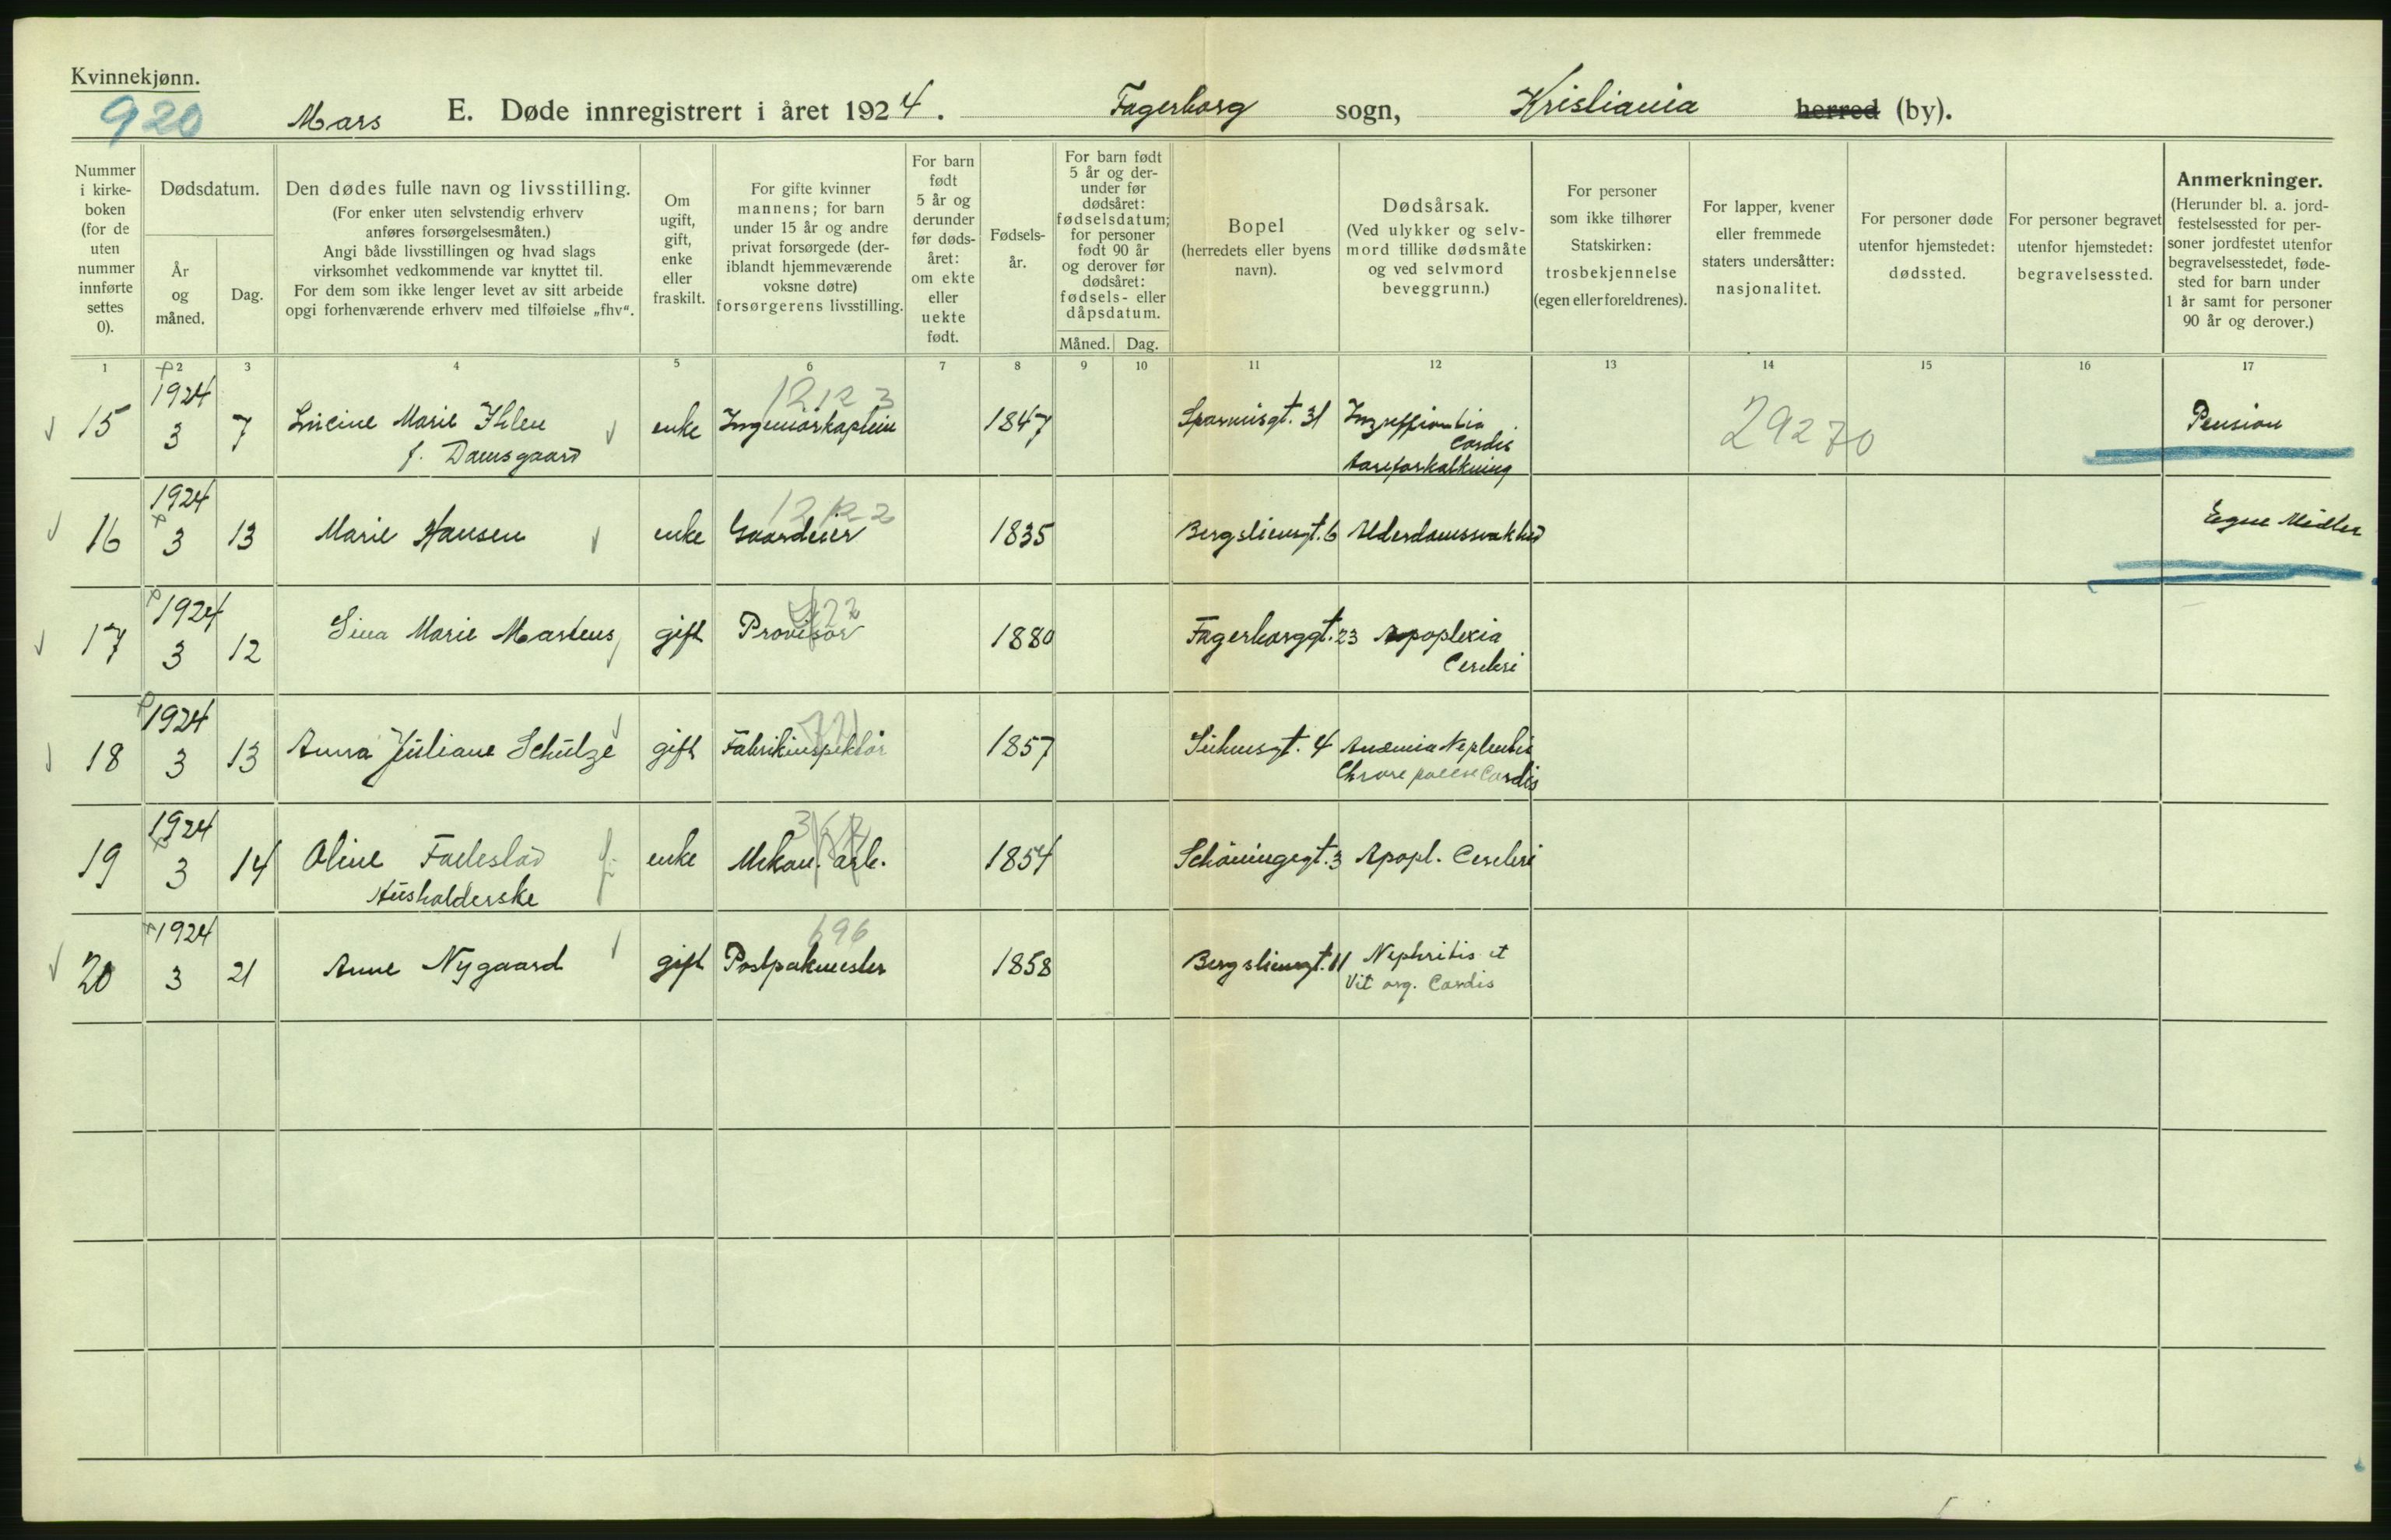 Kvinnekjønn.
920 Mars E. Døde innregistrert i året 1924. Fagerborg sogn, Kristiania herred (by).
Nummer i kirke- boken (for de uten nummer innførte settes 0).
Dødsdatum.
År og måned.
Dag.
Den dødes fulle navn og livsstilling.
(For enker uten selvstendig erhverv
anføres forsørgelsesmåten.)
Angi både livsstillingen og hvad slags
virksomhet vedkommende var knyttet til.
For dem som ikke lenger levet av sitt arbeide
opgi forhenværende erhverv med tilføielse „fhv“.
Om ugift, gift, enke eller fraskilt.
For gifte kvinner
mannens; for barn
under 15 år og andre
privat forsørgede (der-
iblandt hjemmeværende
voksne døtre)
forsørgerens livsstilling.
For barn født 5 år og derunder før døds- året: om ekte eller uekte født.
Fødsels- år.
For barn født
5 år og der-
under før
dødsåret:
fødselsdatum;
for personer
født 90 år
og derover før
dødsåret:
fødsels- eller
dåpsdatum.
Måned. Dag.
Bopel
(herredets eller byens
navn).
Dødsårsak.
(Ved ulykker og selv-
mord tillike dødsmåte
og ved selvmord
beveggrunn.)
For personer
som ikke tilhører
Statskirken:
trosbekjennelse
(egen eller foreldrenes).
For lapper, kvener
eller fremmede
staters undersåtter:
nasjonalitet.
For personer døde
utenfor hjemstedet:
dødssted.
For personer begravet
utenfor hjemstedet:
begravelsessted.
Anmerkninger.
(Herunder bl. a. jord-
festelsessted for per-
soner jordfestet utenfor
begravelsesstedet, føde-
sted for barn under
1 år samt for personer
90 år og derover.)
1 2 3 4 5 6 7 8 9 10 11 12 13 14 15 16 17
15 1924 3 7 Marie Ihlen f. Damsgaard enke Ingeniørkaptein 1847 31 Cordis Aareforkalkning 29270 Pension
16 1924 3 13 Marie Hansen enke Gaardeier 1835 Bergsliensgt. 6 Alderdomssvakhed Egne Midler
17 1924 3 12 Marie Martens gift Provisor 1880 Fagerborggt. 23 Apoplexia Cerebri
18 1924 3 13 Anna Juliane Schulze gift Fabrikinspektør 1857 Suhmsgt. 4 Anæmia Cordis
19 1924 3 14 Oline Husholderske enke Mekan. arb. 1854 Schøningsgt. 3 Apopl. Cerebri
20 1924 3 21 Anne Nygaard gift 696 Postpakmester 1858 Bergsliensgt. 11 Nephritis et Vit org. Cordis